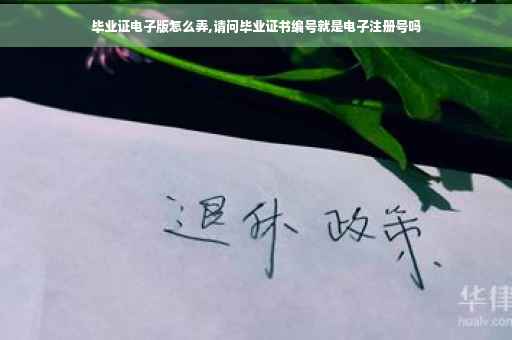 毕业证电子版怎么弄,请问毕业证书编号就是电子注册号吗
退休 政策
华律
hualv.com